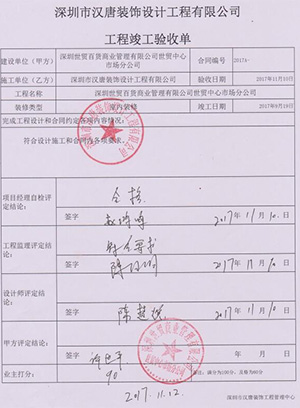 深圳市汉唐装饰设计工程有限公司
工程竣工验收单
建设单位（甲方） 深圳世贸百货商业管理有限公司世贸中心市场分公司 合同编号 2017A-
施工单位（乙方） 深圳市汉唐装饰设计工程有限公司 验收日期 2017年11月10日
工程名称 深圳世贸百货商业管理有限公司世贸中心市场分公司
装修类型 室内装修 竣工日期 2017年9月19日
完成工程设计和合同约定各项内容情况：
符合设计施工和合同内各项要求。
项目经理自检评定结论： 合格
签字 2017年11月10日
工程监理评定结论： 符合要求
签字 2017年11月10日
设计师评定结论：
签字 2017年11月10日
甲方评定结论：
签字
业主打分： 90 注：满分为100分，及格为60分
2017.11.12
深圳市汉唐装饰设计工程有限公司工程管理中心